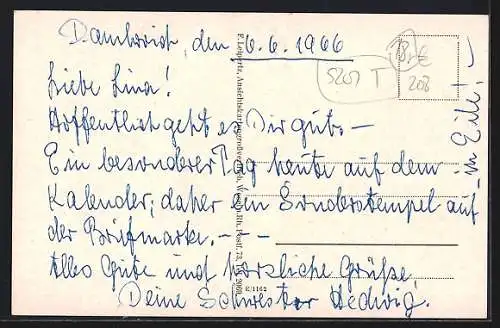 Dambroich, den 6.6.1966
Liebe Lina!
Hoffentlich geht es Dir gut. –
Ein besondrer Tag heute auf dem
Kalender, daher ein Sonderstempel auf
der Briefmarke. – – –
Alles Gute und herzliche Grüße,
Deine Schwester Hedwig.
– in Eile! –
5207 T
208
F. Leipertz, Ansichtskartengroßvertrieb,
E/1162